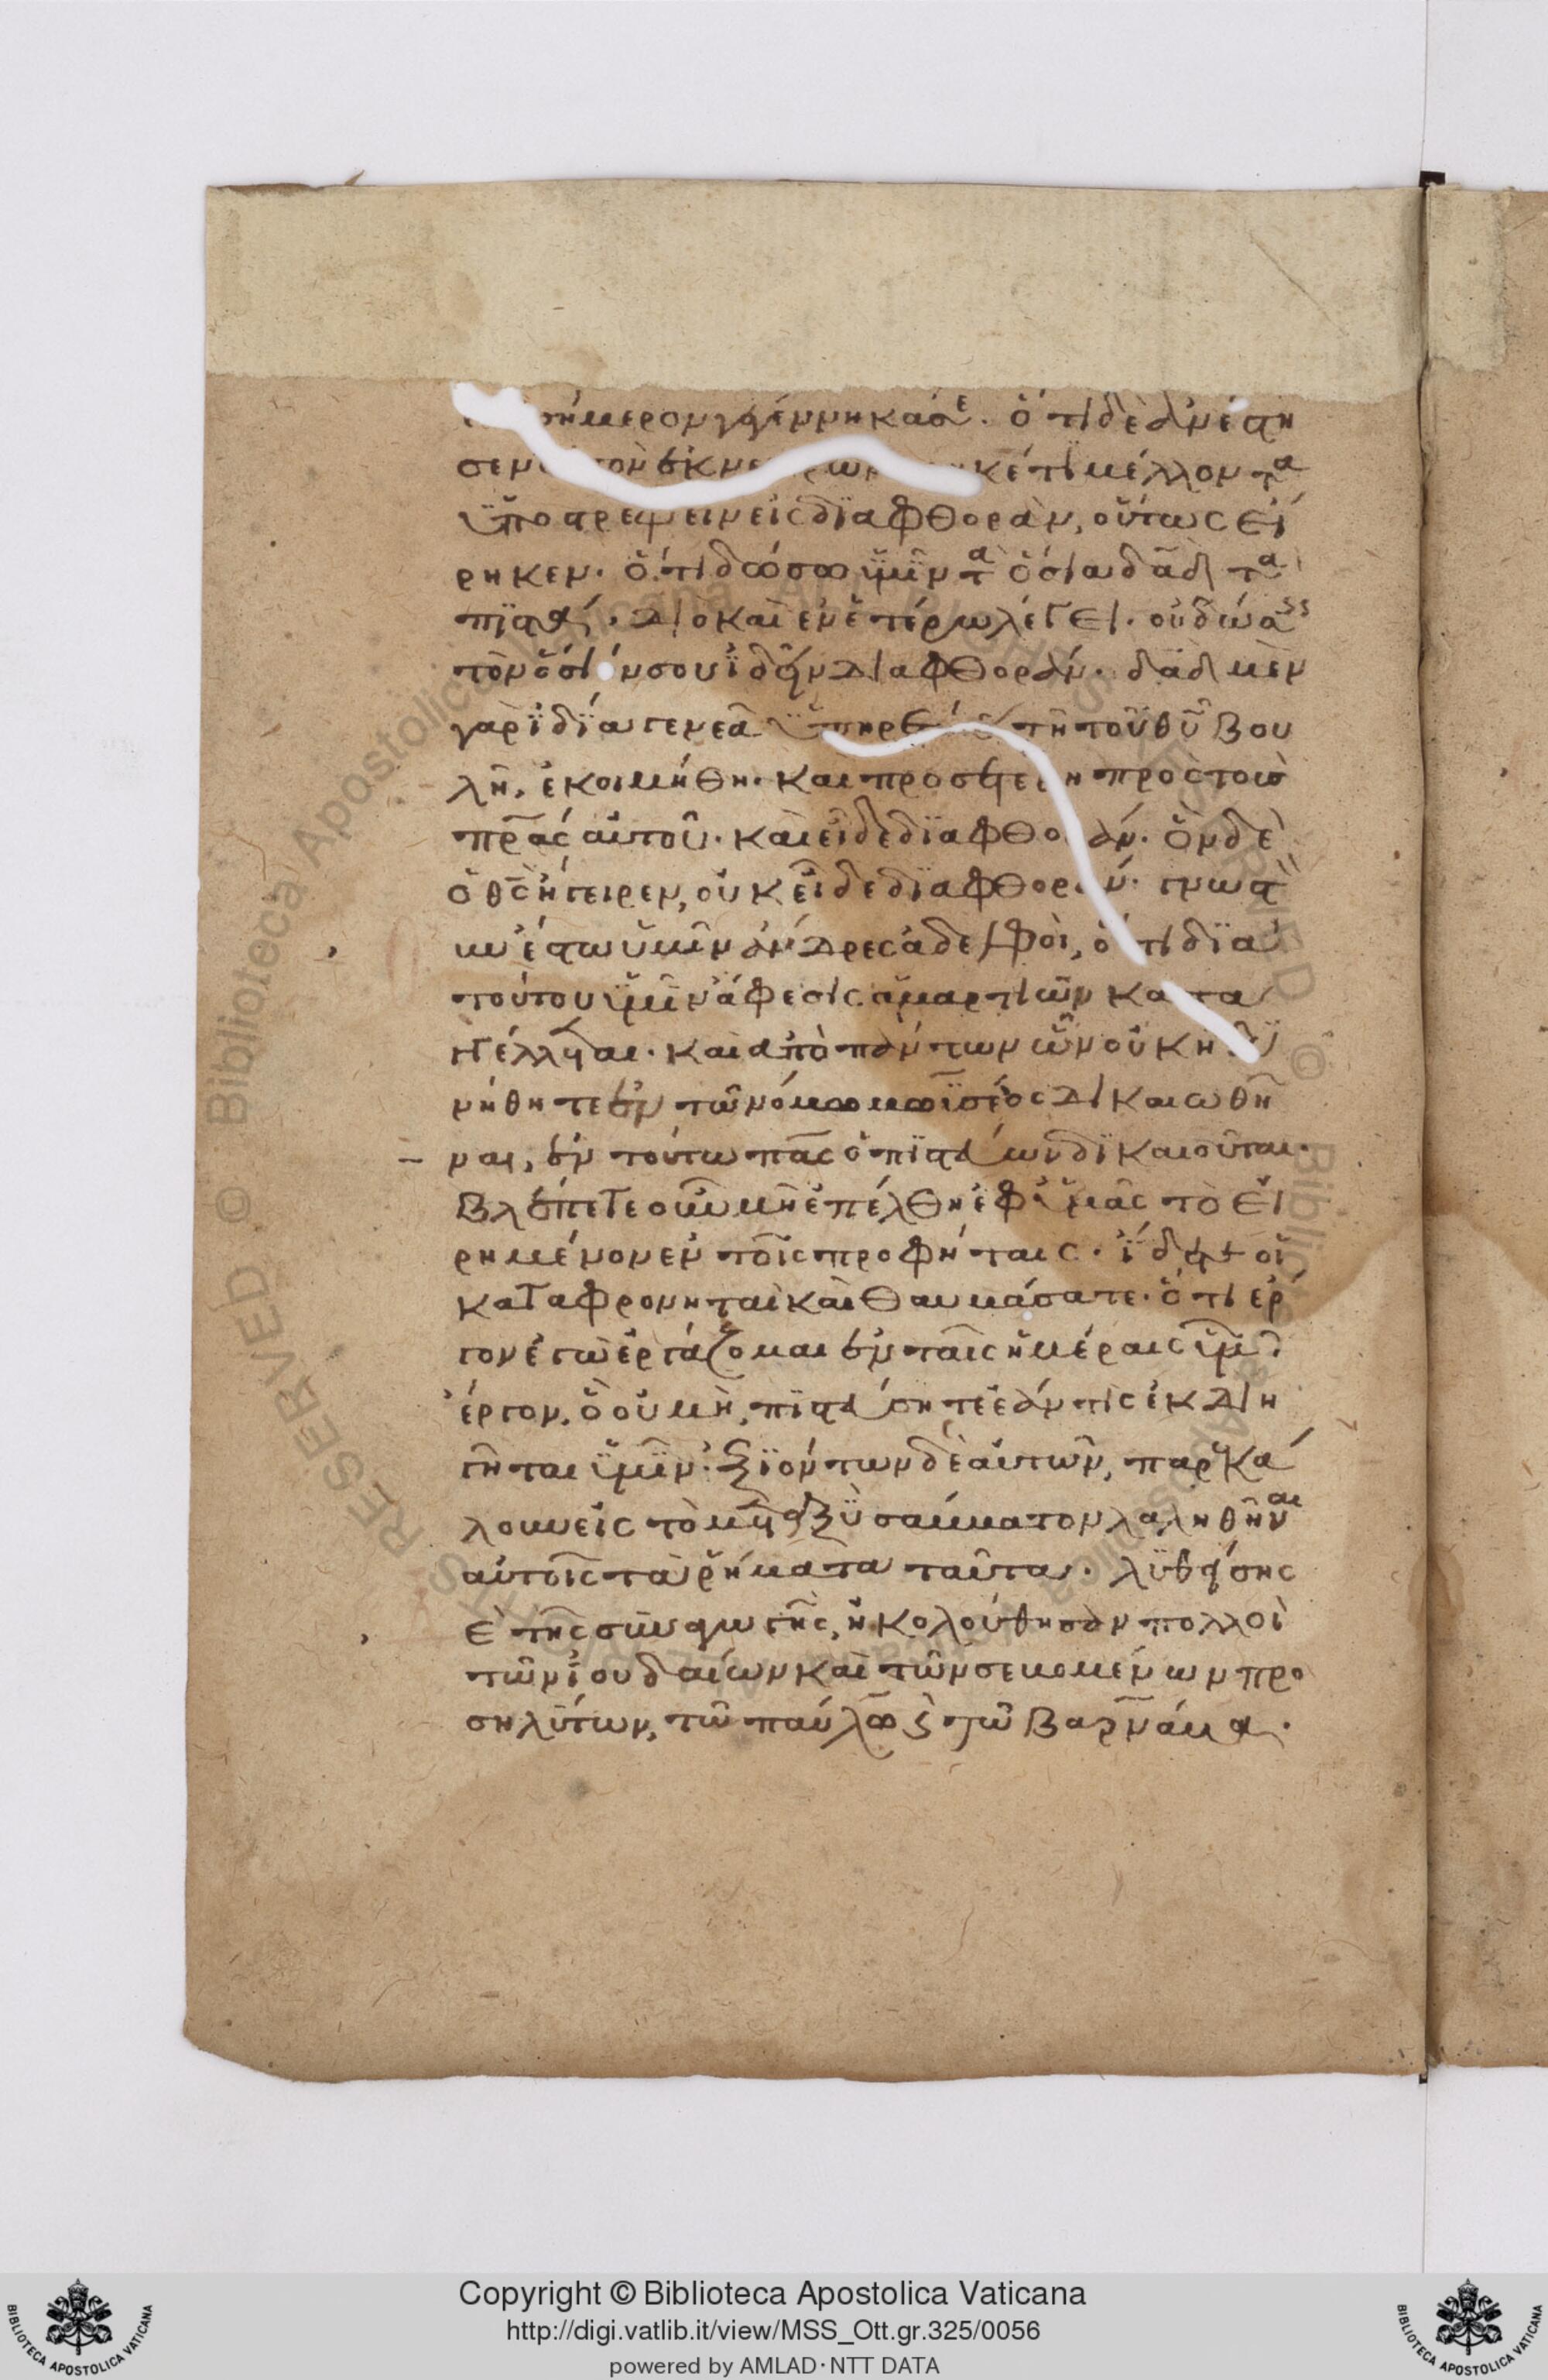 σήμερον γεγέννηκά σε. ὅτι δὲ ἀνέστη
σεν ἐκ νε κέτι μέλλοντα
ὑποστρέφειν εἰς διαφθορὰν, οὕτως εἴ
ρηκεν. ὅτι δώσω ὑμῖν τὰ ὅσια δαδ τὰ
πιστά. διὸ καὶ ἐν ἑτέρω λέγει. οὐ δώσεις
τὸν ὅσιόν σου ἰδεῖν διαφθοράν. δαδ μὲν
γὰρ ἰδία γενεᾶ τῆ τοῦ θυ βου
λῆ, ἐκοιμήθη. καὶ προσετέθη πρὸς τοὺς
πρας αὐτοῦ. καὶ εἶδε διαφθοράν. ὃν δὲ
ὁ θς ἤγειρεν, οὐκ εἶδε διαφθοράν. γνωστὸ
ν ἔστω ὑμῖν ἄνδρες ἀδελφοὶ, ὅτι διὰ
τούτου ὑμῖν ἄφεσις ἁμαρτιῶν κατα
γγέλλεται. καὶ ἀπὸ πάντων ὧν οὐκ ἠδυ
νήθητε ἐν τῶ νόμω μωϊσέος δικαιωθῆ
ναι, ἐν τούτω πᾶς ὁ πιστεύων δικαιοῦται.
Βλέπετε οὖν μὴ ἐπέλθη ἐφ ὑμᾶς τὸ εἰ
ρημένον ἐν τοῖς προφήταις. ἴδετε οἱ
καταφρονηταὶ καὶ θαυμάσατε. ὅτι ἔρ
γον ἐγὼ ἐργάζομαι ἐν ταῖς ἡμέραις ὑμῶν
ἔργον, ὃ οὐ μὴ, πιστεύσητε ἐάν τις ἐκδιη
γῆται ὑμῖν. ἐξιόντων δὲ αὐτῶν, παρεκά
λουν εἰς τὸ μεταξὺ σάββατον λαληθῆναι
αὐτοῖς τὰ ῥήματα ταῦτα. λυθείσης
δὲ τῆς συναγωγῆς, ἠκολούθησαν πολλοὶ
τῶν ἰουδαίων καὶ τῶν σεβομένων προ
σηλύτων, τῶ παύλω καὶ τῶ Βαρνάβα.
Copyright © Biblioteca Apostolica Vaticana
http://digi.vatlib.it/view/MSS_Ott.gr.325/0056
powered by AMLAD·NTT DATA